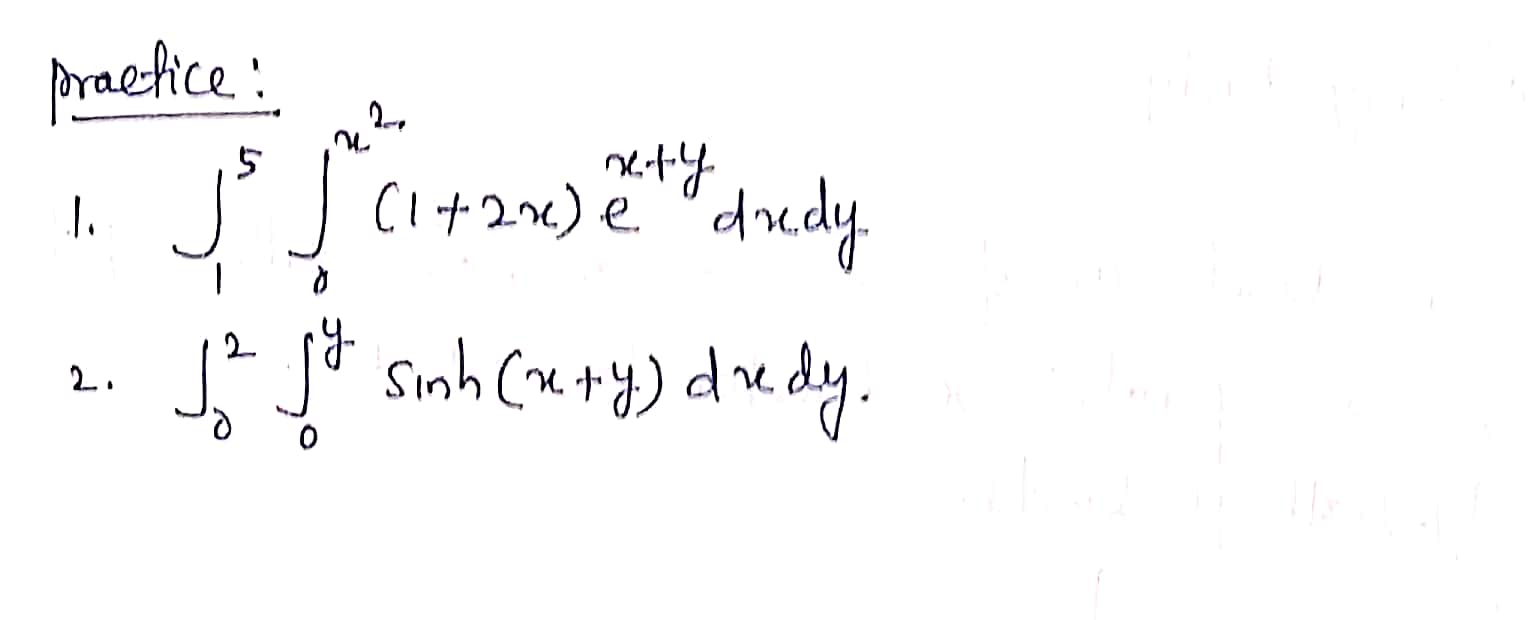 practice:
1. ∫₁⁵ ∫₀^{x²} (1+2x) e^{x+y} dxdy.
2. ∫₀² ∫₀^{y} sinh(x+y) dxdy.